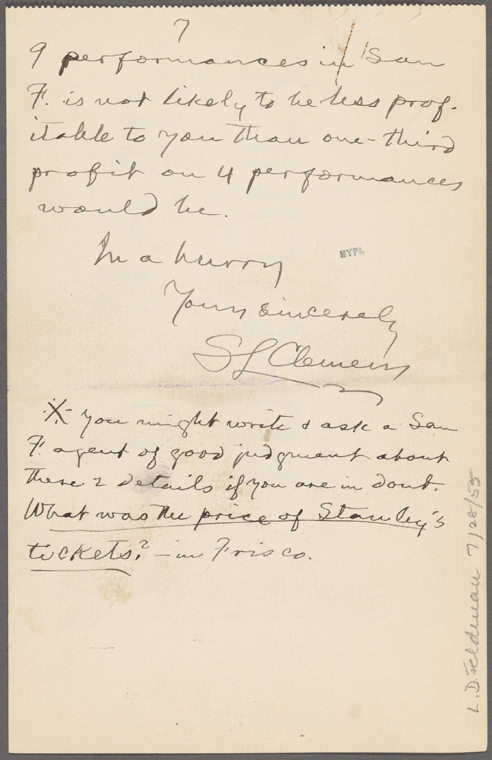 7
9 performances in San
F. is not likely to be less prof-
itable to you than one-third
profit on 4 performances
would be.
In a hurry
NYPL
Yours sincerely
SL Clemens
X You might write & ask a San
F. agent of good judgment about
these 2 details if you are in dout.
What was the price of Stanley's
tickets? — in Frisco.
L. D. Feldman 7/28/55